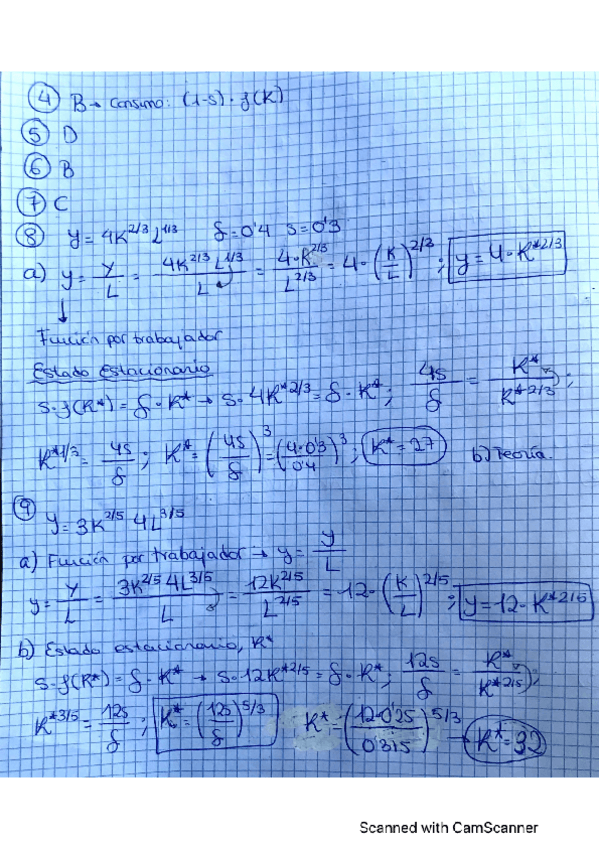 ④ B → Consumo: (1-s) · f(K)
⑤ D
⑥ B
⑦ C
⑧ y = 4K^2/3 L^1/3 δ = 0'4 s = 0'3
a) y = Y/L = 4K^2/3 L^1/3 / L = 4·K^2/3 / L^2/3 = 4·(K/L)^2/3 ; y = 4·K*^2/3
↓
Función por trabajador
Estado Estacionario
s·f(K*) = δ·K* → s·4K*^2/3 = δ·K* ; 4s/δ = K*/K*^2/3 ;
K*^1/3 = 4s/δ ; K* = (4s/δ)^3 = (4·0'3/0'4)^3 ; K* = 27 b) Teoría.
⑨ y = 3K^2/5 4L^3/5
a) Función por trabajador → y = Y/L
y = Y/L = 3K^2/5 4L^3/5 / L = 12K^2/5 / L^2/5 = 12·(K/L)^2/5 ; y = 12·K*^2/5
b) Estado estacionario, K*
s·f(K*) = δ·K* → s·12K*^2/5 = δ·K* ; 12s/δ = K*/K*^2/5 ;
K*^3/5 = 12s/δ ; K* = (12s/δ)^5/3 K* = (12·0'25/0'315)^5/3 → K* = 32
Scanned with CamScanner